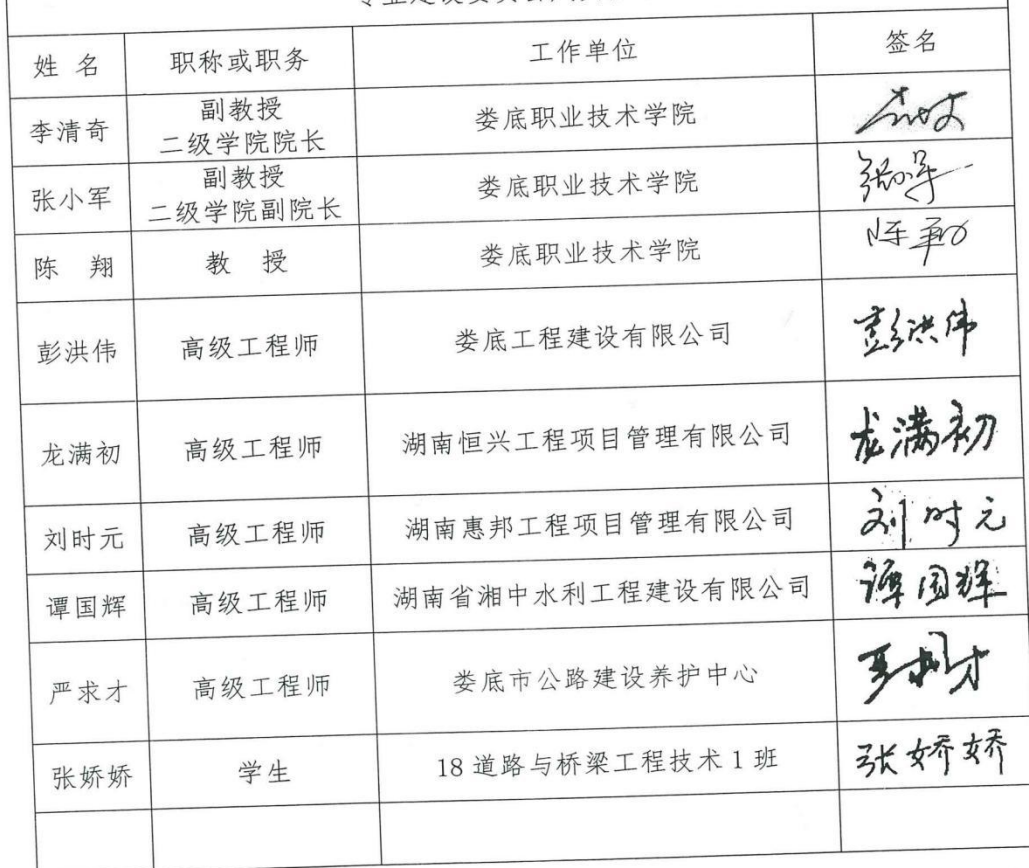 姓 名 职称或职务 工作单位 签名
李清奇 副教授 二级学院院长 娄底职业技术学院
张小军 副教授 二级学院副院长 娄底职业技术学院
陈 翔 教 授 娄底职业技术学院
彭洪伟 高级工程师 娄底工程建设有限公司 彭洪伟
龙满初 高级工程师 湖南恒兴工程项目管理有限公司 龙满初
刘时元 高级工程师 湖南惠邦工程项目管理有限公司 刘时元
谭国辉 高级工程师 湖南省湘中水利工程建设有限公司 谭国辉
严求才 高级工程师 娄底市公路建设养护中心
张娇娇 学生 18 道路与桥梁工程技术 1 班 张娇娇